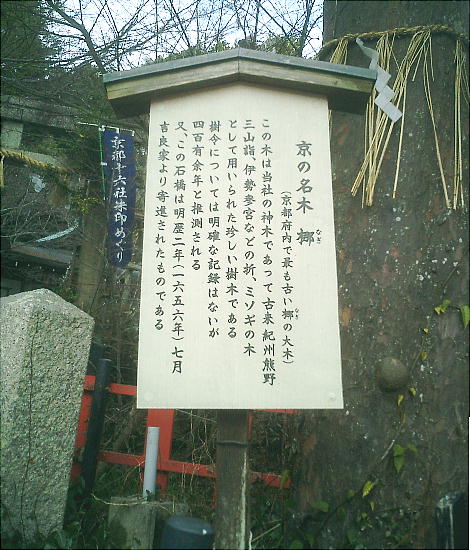 京の名木 梛
なぎ
(京都府内で最も古い梛の大木)
なぎ
この木は当社の神木であって古来紀州熊野
三山詣、伊勢参宮などの折、ミソギの木
として用いられた珍しい樹木である
樹令については明確な記録はないが
四百有余年と推測される
又、この石橋は明歴二年(一六五六年)七月
吉良家より寄進されたものである
京都十六社朱印めぐり